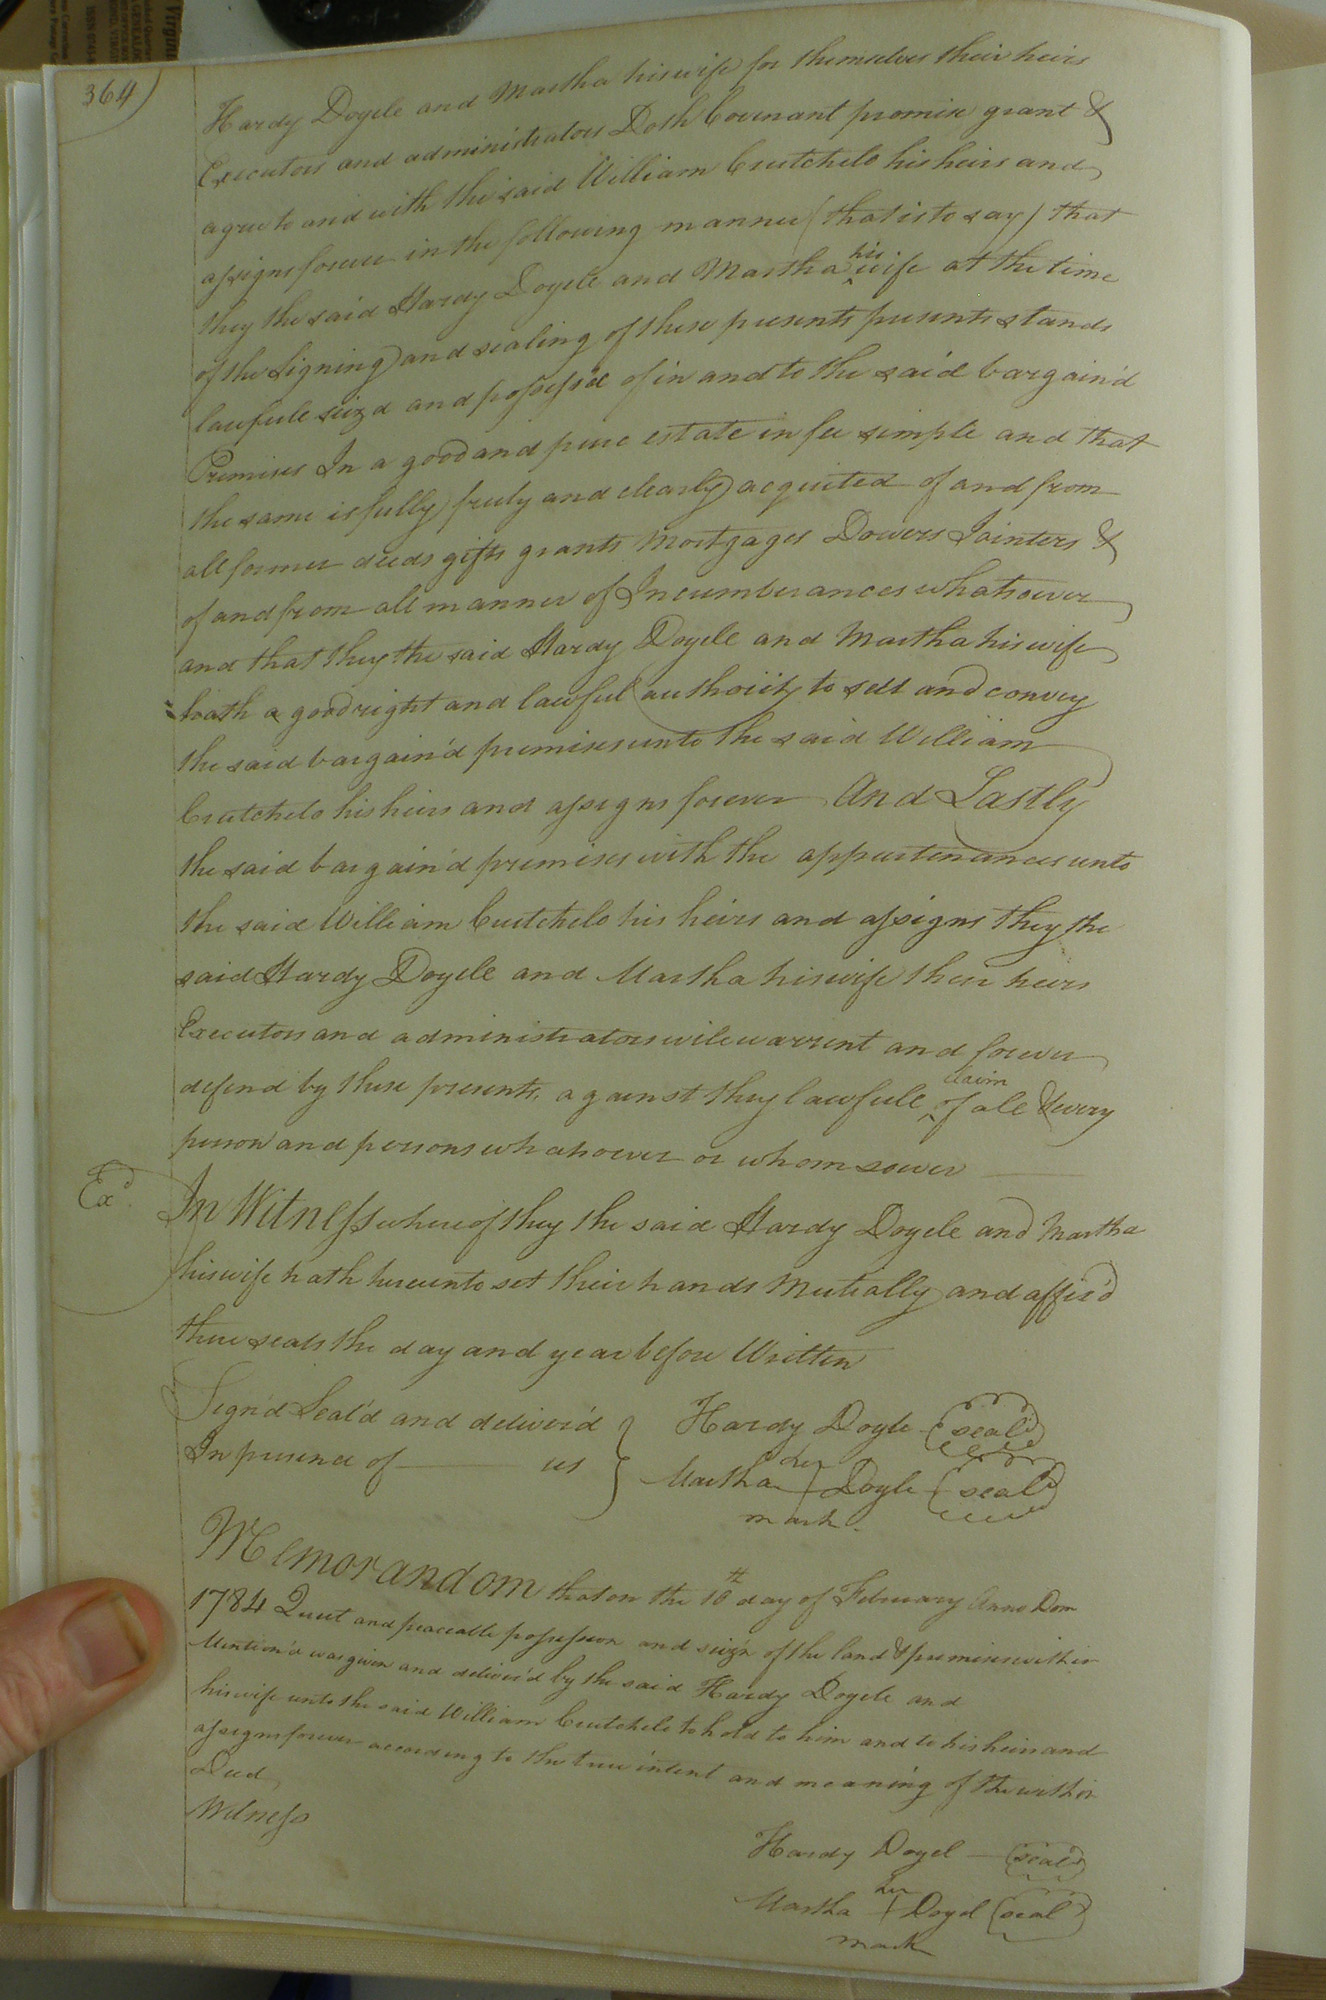 Virgin
364
Hardy Doyele and Martha his wife for themselves their heirs
Executors and administrators Doth Covenant promise grant &
agree to and with the said William Crutchelo his heirs and
assigns forever in the following manner (that is to say) that
they the said Hardy Doyele and Martha his wife at the time
of the Signing and sealing of these presents presents stands
lawfule seizd and possess'd of in and to the said bargain'd
Premises In a good and pure estate in fee simple and that
the same is fully freely and clearly acquited of and from
all former deeds gifts grants Mortgages Dowers Jointers &
of and from all manner of Incumberances whatsoever
and that they the said Hardy Doyele and Martha his wife
hath a good right and lawful authoirity to sell and convey
the said bargain'd premises unto the said William
Crutchelo his heirs and assigns forever And Lastly
the said bargain'd premises with the appurtenances unto
the said William Crutchelo his heirs and assigns they the
said Hardy Doyele and Martha his wife their heirs
Executors and administrators will warrent and forever
defend by these presents, against they lawfull claim of all & every
person and persons whatsoever or whomsoever
Exd.
In Witness whereof they the said Hardy Doyele and Martha
his wife hath hereunto set their hands Mutially and affix'd
there seals the day and year before Written
Sign'd Seal'd and deliver'd
In presence of us
Hardy Doyle (seal)
her
Martha Doyle (seal)
mark.
Memorandom that on the 10th day of February Anno Dom
1784 Quiet and peaceable possession and seizn of the land & premises within
Mention'd was given and deliver'd by the said Hardy Doyele and
his wife unto the said William Crutchelo to hold to him and to his heirs and
assigns forever according to the true intent and meaning of the within
Deed,
Witness
Hardy Doyel (seal)
her
Martha Doyel (seal)
mark